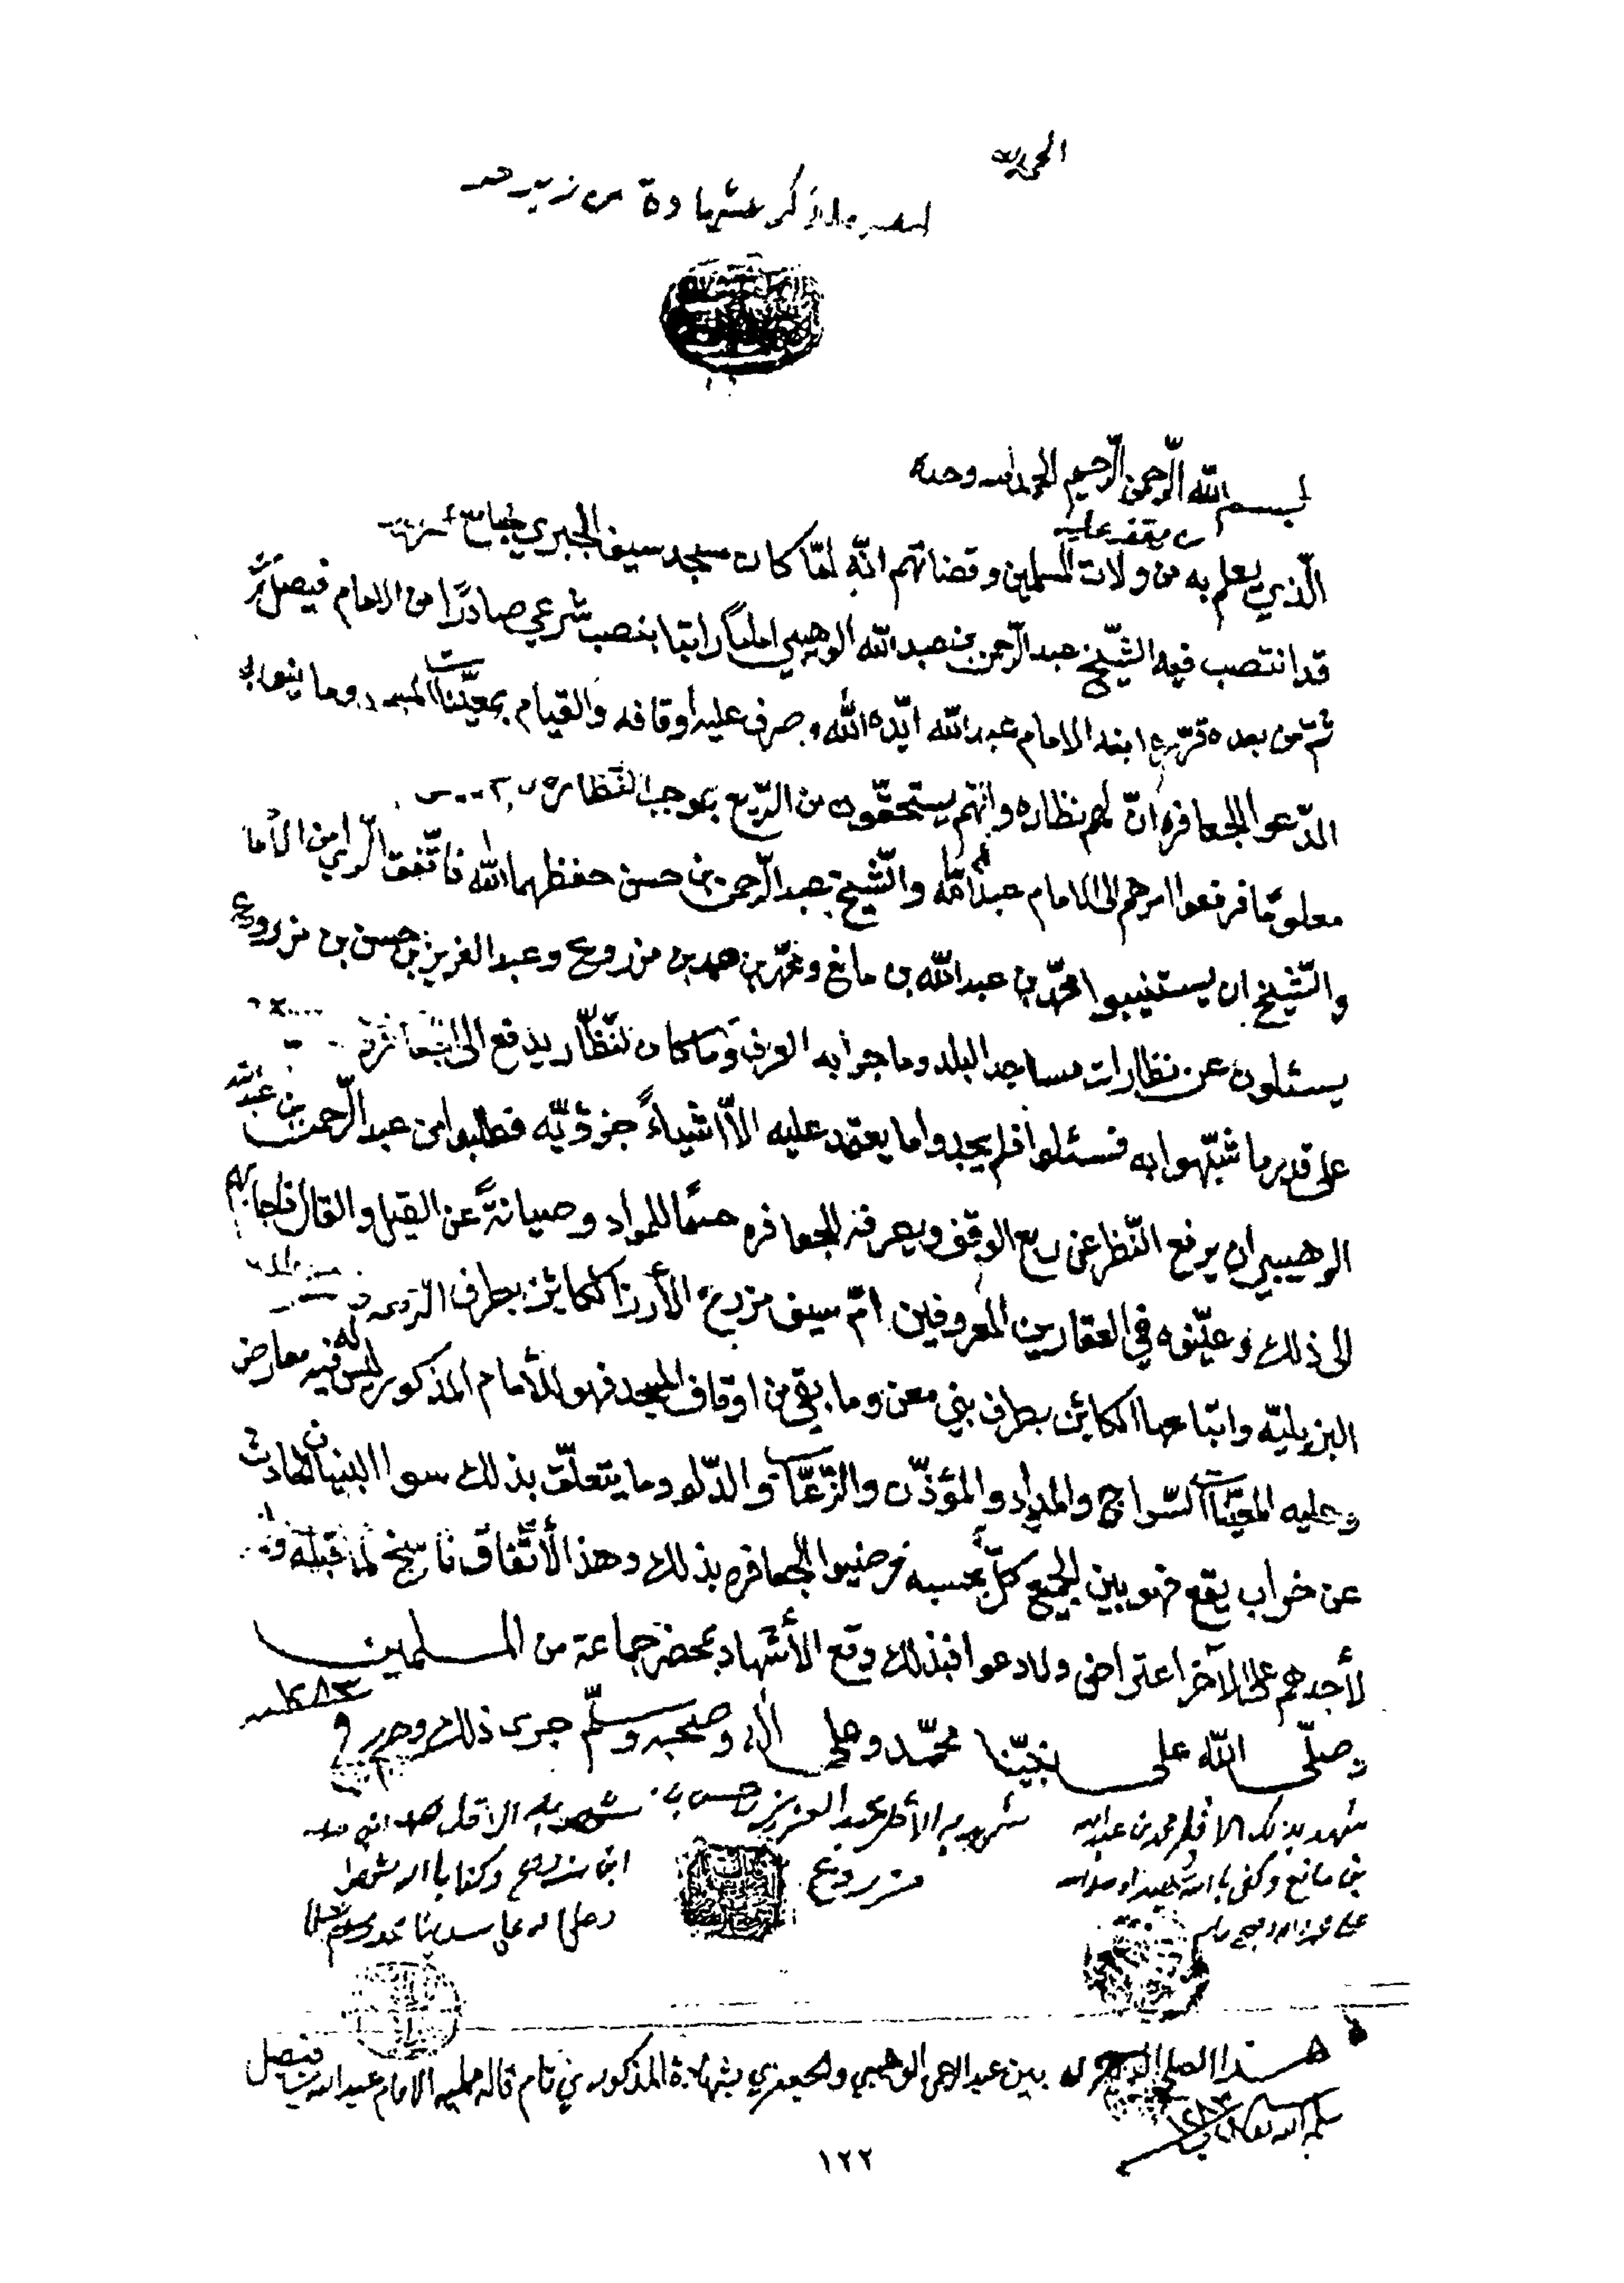 الحمد لله
ما ذكر شهادة من
بسم الله الرحمن الرحيم الحمد لله وحده
يقف عليه
الذي يعلم به من ولات المسلمين وقضاتهم انه لما كان مسجد سيف الجبري
قد انتصب فيه الشيخ عبد الرحمن بن عبد الله الوهيبي اماما راتبا بنصب شرعي صادرا من الامام فيصل
ثم من بعده قرره ابنه الامام عبد الله ايده الله وصرف عليه اوقافه والقيام بمعينات المسجد وما ينوابه
ادعوا الجعافره ان لهم نظاره وانهم يستحقون من الريع بموجب النظاره
معلوما فرفعوا امرهم الى الامام عبد الله والشيخ عبد الرحمن بن حسن حفظهما الله فاتفق الراي من الامام
والشيخ ان يستنيبوا محمد بن عبد الله بن مانع ومحمد بن حمد بن مزروع وعبد العزيز بن حسن بن مزروع
يسئلون عن نظارات مساجد البلد وما جرا به العرف وما كان للنظار يدفع الى الجعافره
على قدر ما شبهوا به فسئلوا فلم يجدوا ما يعتمد عليه الا اشياء جزؤيه فطلبوا من عبد الرحمن بن عبد الله
الوهيبي ان يرفع النظر عن ريع الوقف ويصرفه للجعافره حسما للمواد وصيانة عن القيل والقال فاجابهم
الى ذلك وعينوه في العقارين المعروفين ام سيف مزرع الأرز الكائن بطرف
البزيليه واتباعها الكائن بطرف بني معن وما بقي من اوقاف المسجد فهو للأمام المذكور ليس له فيه معارض
وعليه المعينات السراج والمداد والمؤذن والدلو وما يتعلق بذلك سوا البنيان الحادث
عن خراب يقع فهو بين الجميع كل بحسبه فرضيوا الجعافره بذلك وهذا الأتفاق ناسخ لما قبله
لأحدهم على الآخر اعتراض ولا دعوا فبذلك وقع الأشهاد بمحضر جماعة من المسلمين
وصلى الله على نبينا محمد وعلى آله وصحبه وسلم جرى ذلك وحرر في ١٢٨٣
شهد بذلك الاقل محمد بن عبد الله
بن مانع وكفى بالله شهيدا وصلى الله
على محمد واله وصحبه وسلم
شهد به الأقل عبد العزيز بن حسن بن
مزروع
شهد به الاقل حمد
ابن مزروع وكفا بالله شهيدا
وصلى الله على سيدنا محمد وسلم
هذا الصلح بين عبد الرحمن الوهيبي والجعيفري بشهادة المذكورين تام قاله ممليه الامام عبد الله بن فيصل
سلمه الله تعالى ١٢٨٣
١٢٢